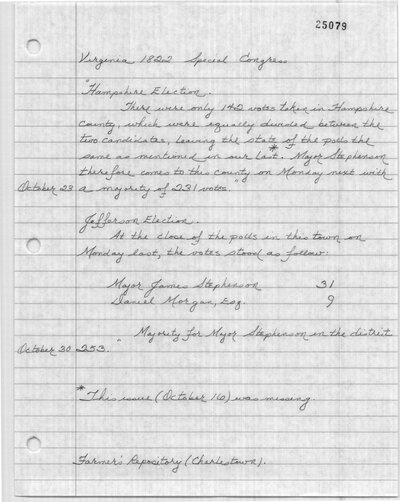 25079
Virginia 1822 Special Congress
"Hampshire Election.
There were only 142 votes taken in Hampshire
County, which were equally divided between the
two candidates, leaving the state of the polls the
same as mentioned in our last.* Major Stephenson
therefore comes to this county on Monday next with
October 23 a majority of 231 votes."
Jefferson Election.
At the close of the polls in this town on
Monday last, the votes stood as follow:
Major James Stephenson 31
Daniel Morgan, Esq. 9
Majority for Major Stephenson in the district
October 30 253."
*This issue (October 16) was missing.
Farmer's Repository (Charlestown).